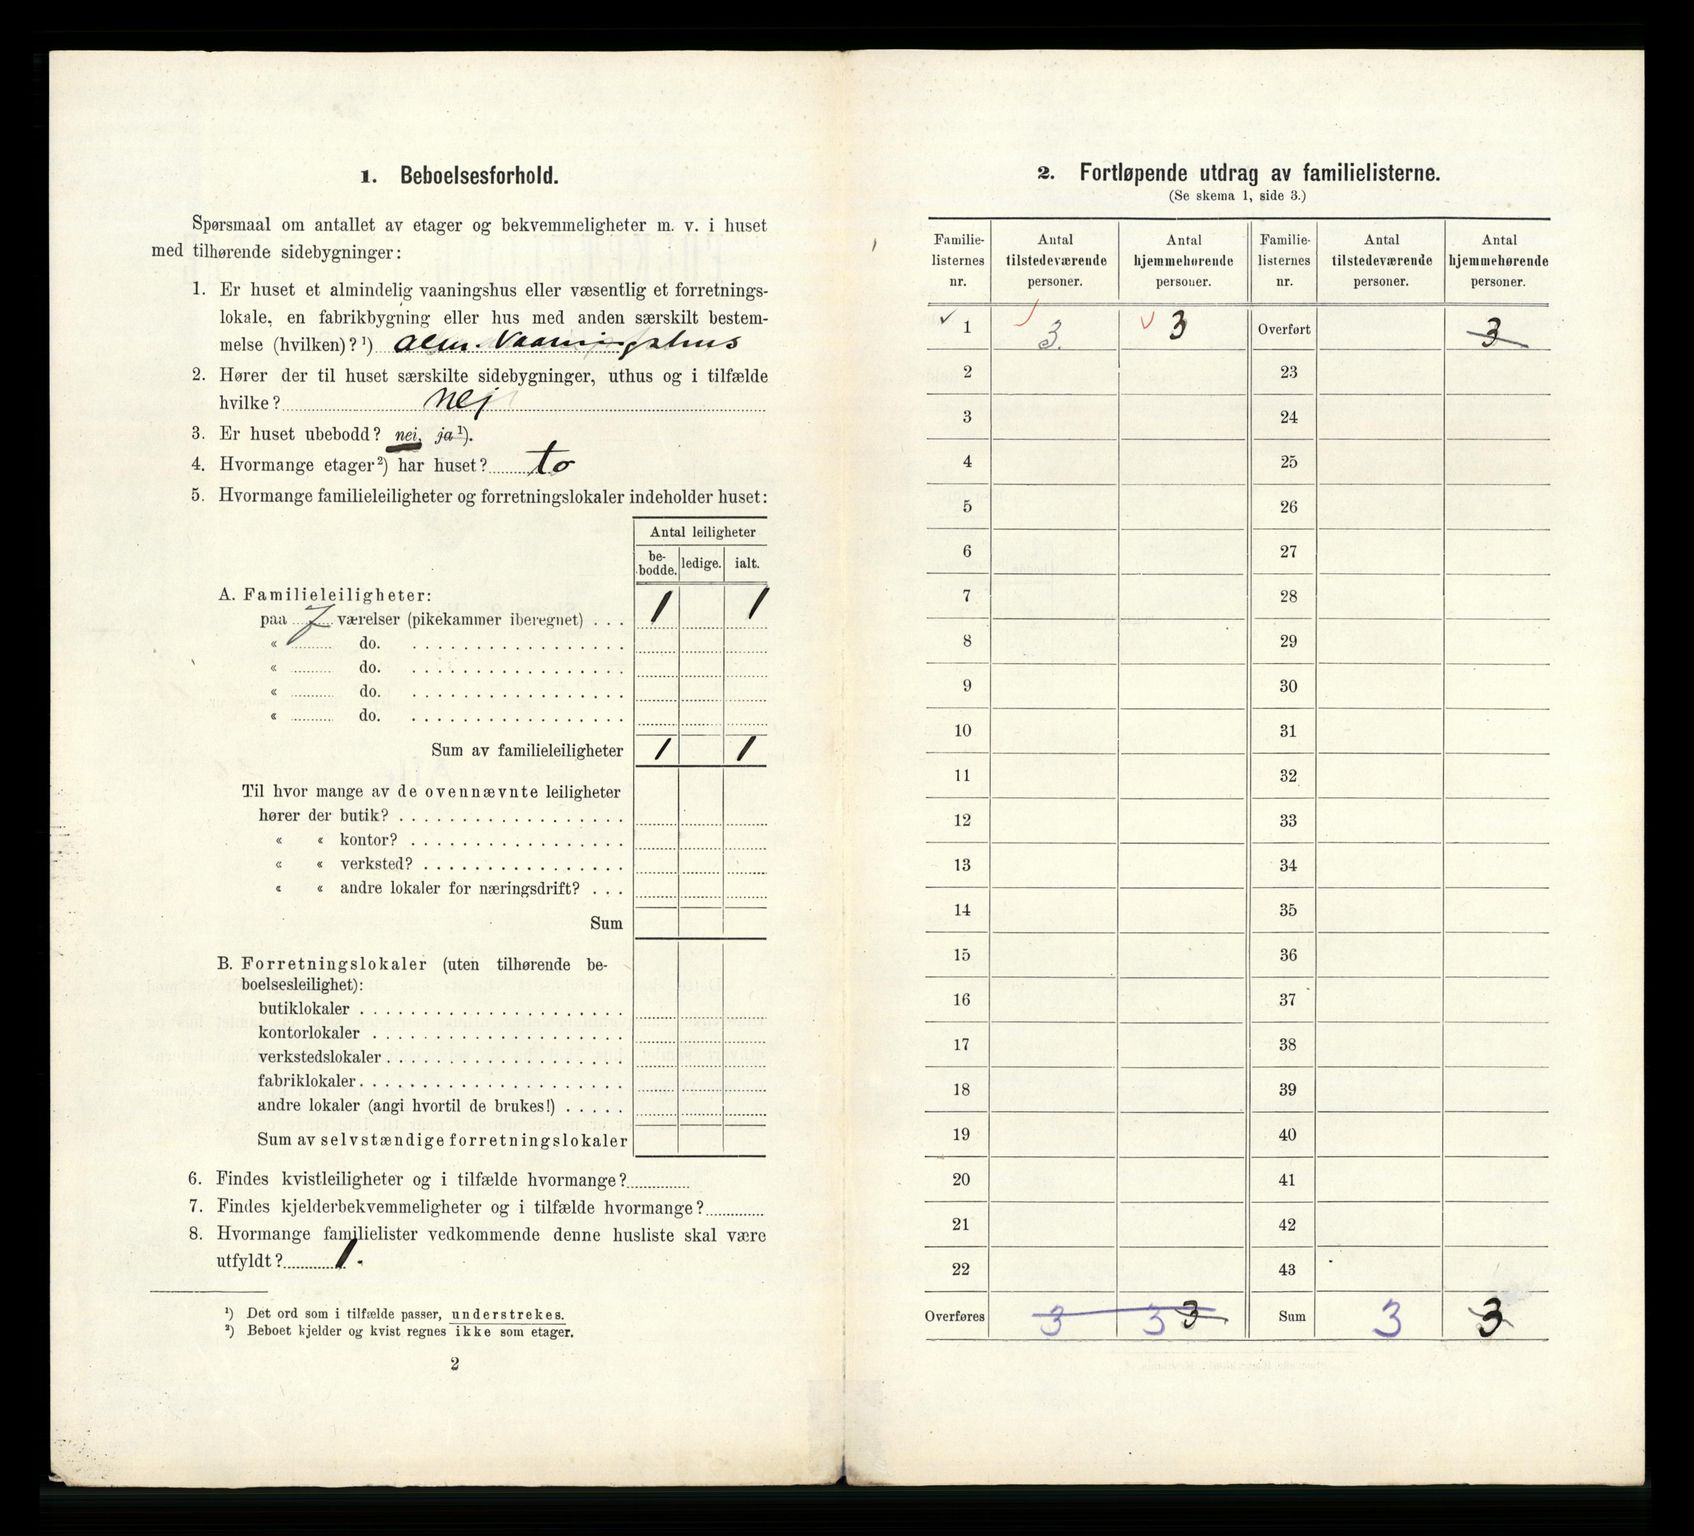 1. Beboelsesforhold.
Spørsmaal om antallet av etager og bekvemmeligheter m. v. i huset
med tilhørende sidebygninger:
1. Er huset et almindelig vaaningshus eller væsentlig et forretnings-
lokale, en fabrikbygning eller hus med anden særskilt bestem-
melse (hvilken)?¹) alm. Vaaningshus
2. Hører der til huset særskilte sidebygninger, uthus og i tilfælde
hvilke? Nej
3. Er huset ubebodd? nei, ja¹).
4. Hvormange etager²) har huset? to
5. Hvormange familieleiligheter og forretningslokaler indeholder huset:
Antal leiligheter
be-bodde. ledige. ialt.
A. Familieleiligheter:
paa 7 værelser (pikekammer iberegnet) . . . 1 1
« do.
« do.
« do.
« do.
Sum av familieleiligheter 1 1
Til hvor mange av de ovennævnte leiligheter
hører der butik?
« « kontor?
« « verksted?
« « andre lokaler for næringsdrift? . . .
Sum
B. Forretningslokaler (uten tilhørende be-
boelsesleilighet):
butiklokaler
kontorlokaler
verkstedslokaler
fabriklokaler
andre lokaler (angi hvortil de brukes!)
Sum av selvstændige forretningslokaler
6. Findes kvistleiligheter og i tilfælde hvormange?
7. Findes kjelderbekvemmeligheter og i tilfælde hvormange?
8. Hvormange familielister vedkommende denne husliste skal være
utfyldt? 1.
¹) Det ord som i tilfælde passer, understrekes.
²) Beboet kjelder og kvist regnes ikke som etager.
2
2. Fortløpende utdrag av familielisterne.
(Se skema 1, side 3.)
Familie- Antal Antal Familie- Antal Antal
listernes tilstedeværende hjemmehørende listernes tilstedeværende hjemmehørende
nr. personer. personer. nr. personer. personer.
1 3. 3 Overført 3
2 23
3 24
4 25
5 26
6 27
7 28
8 29
9 30
10 31
11 32
12 33
13 34
14 35
15 36
16 37
17 38
18 39
19 40
20 41
21 42
22 43
Overføres 3 3 3 Sum 3 3